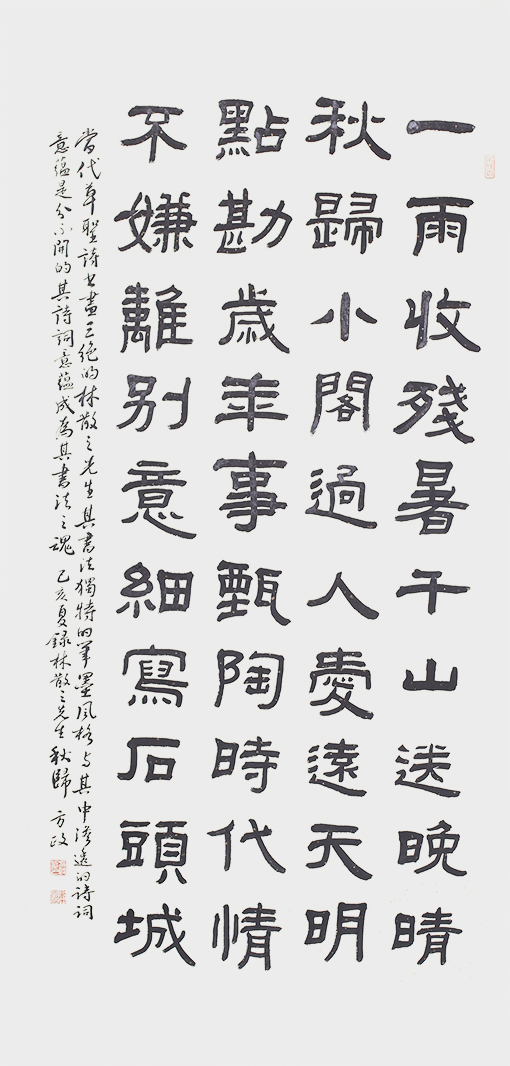 一雨收殘暑千山送晚晴
秋歸小閣過人憂遠天明
點勘歲年事甄陶時代情
不嫌離别意細寫石頭城
當代草聖詩書畫三絕的林散之先生其書法獨特的筆墨風格与其中深邃的詩詞
意蕴是分不開的其詩詞意蕴成為其書法之魂 乙亥夏録林散之先生秋歸 方政